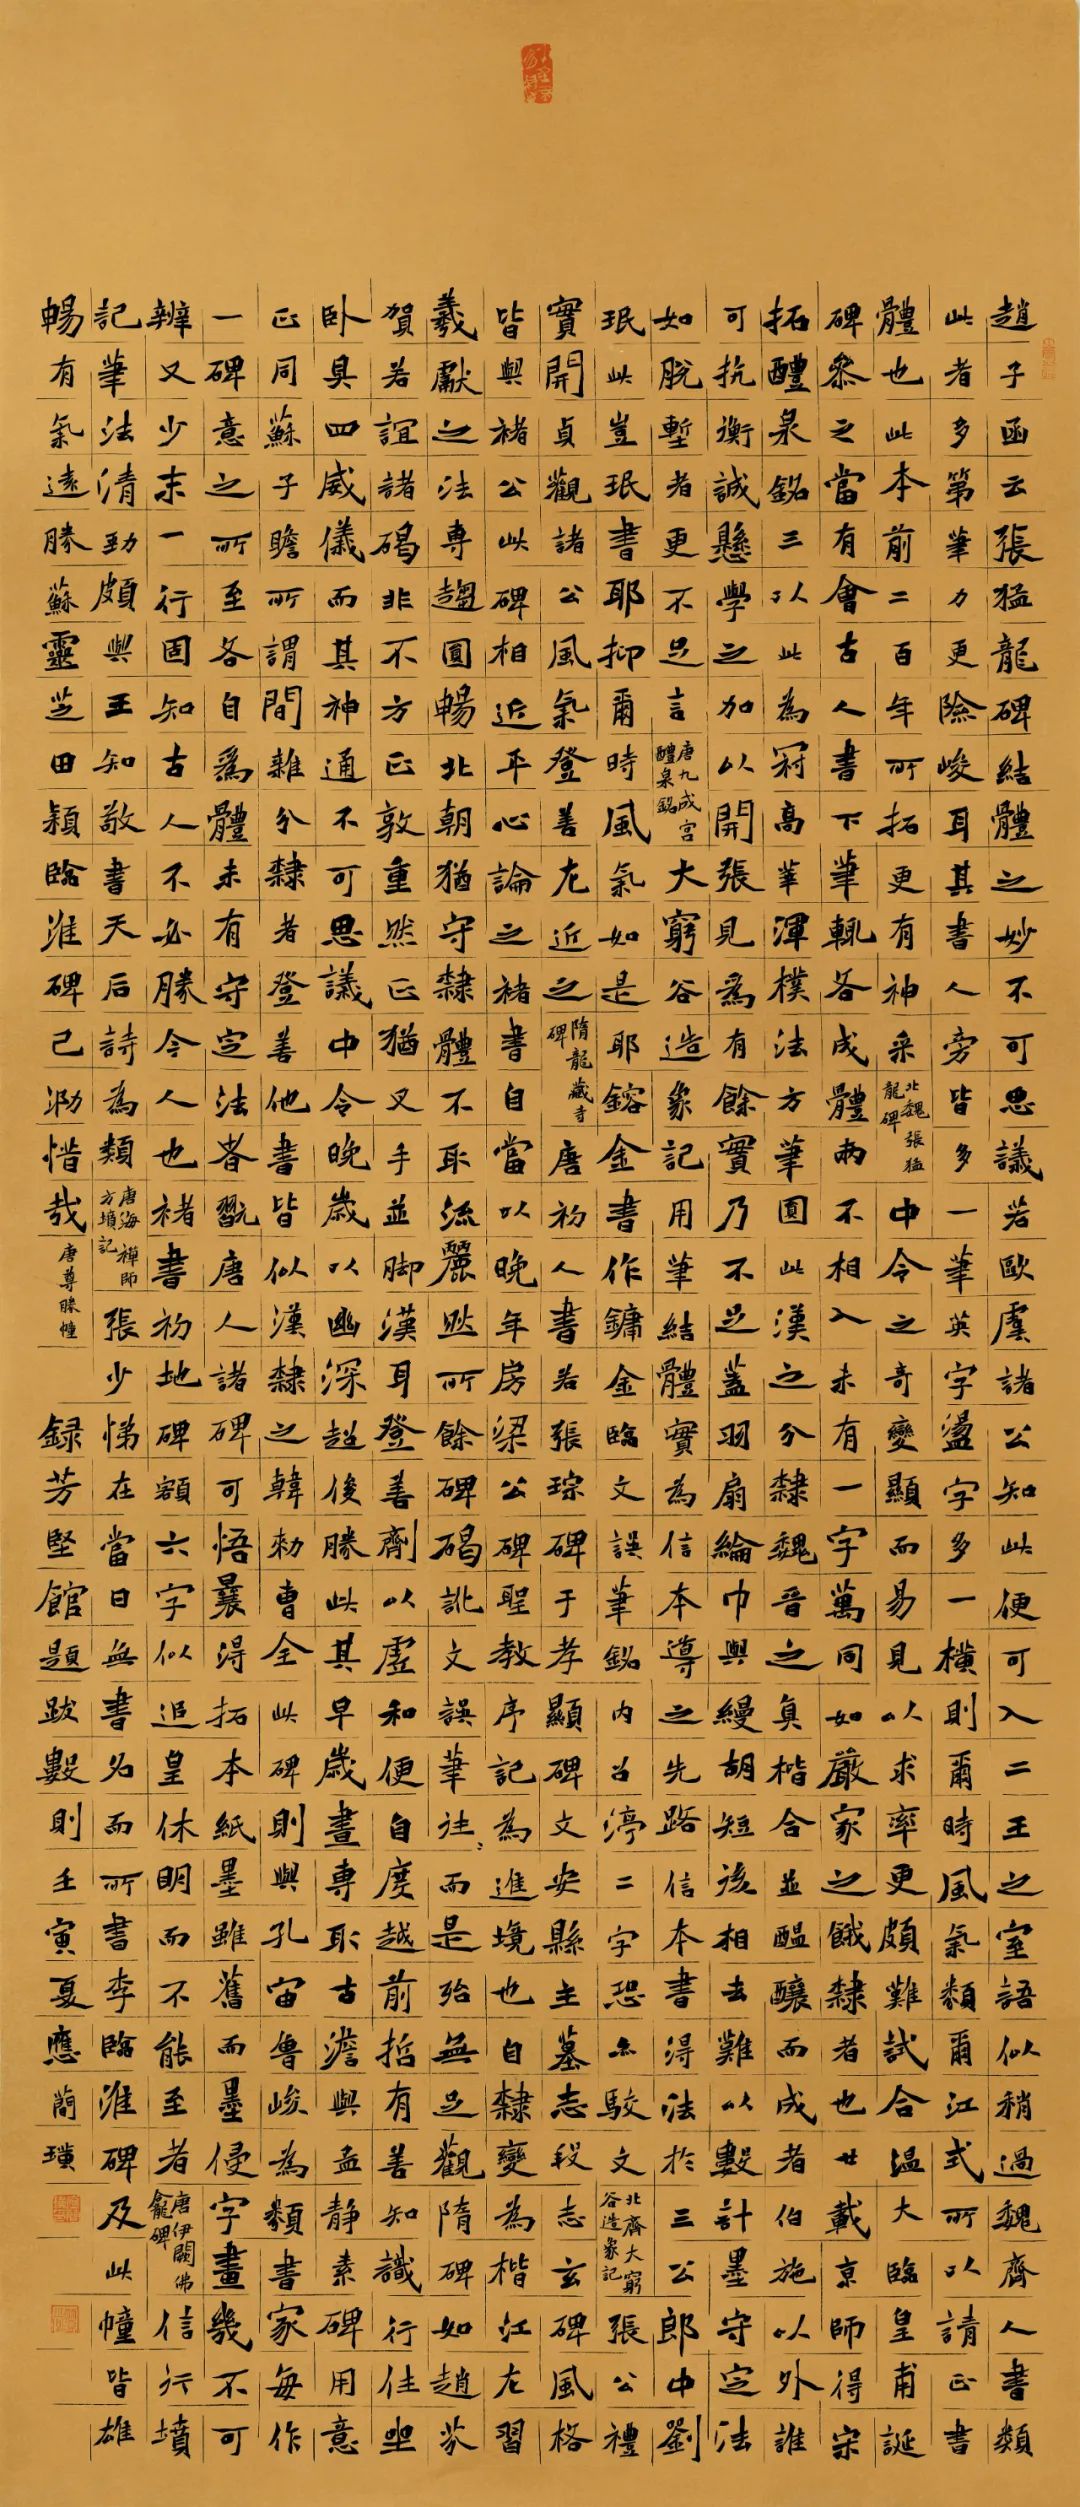 趙子函云張猛龍碑結體之妙不可思議若歐虞諸公知此便可入二王之室語似稍過魏齊人書類
此者多第筆力更險峻耳其書人旁皆多一筆英字盪字多一橫則爾時風氣類爾江式所以請正書
體也此本前二百年所拓更有神采北魏張猛龍碑中令之奇變顯而易見以求率更頗難試合溫大臨皇甫誕
碑叅之當有會古人書下筆輒各成體兩不相入未有一字萬同如嚴家之餓隸者也廿載京師得宋
拓醴泉銘三以此為冠高華渾樸法方筆圓此漢之分隸魏晉之真楷合並醖釀而成者伯施以外誰
可抗衡誠懸學之加以開張見爲有餘實乃不足蓋羽扇綸巾與縵胡短後相去難以數計墨守定法
如脫塹者更不足言唐九成宮醴泉銘大窮谷造象記用筆結體實為信本導之先路信本書得法於三公郎中劉
珉此豈珉書耶抑爾時風氣如是耶鎔金書作鏞金臨文誤筆銘內召渟二字恐亦駮文北齊大窮谷造象記張公禮
實開貞觀諸公風氣登善尤近之隋龍藏寺碑唐初人書若張琮碑于孝顯碑文安縣主墓志段志玄碑風格
皆與褚公此碑相近平心論之褚書自當以晚年房梁公碑聖教序記為進境也自隸變為楷江左習
羲獻之法專趨圓暢北朝猶守隸體不取流麗然所餘碑碣訛文誤筆往往而是殆無足觀隋碑如趙芬
賀若誼諸碣非不方正敦重然正猶叉手並脚漢耳登善劑以虛和便自度越前哲有善知識行住坐
卧具四威儀而其神通不可思議中令晚歲以幽深超後勝此其早歲書專取古澹與孟靜素碑用意
正同蘇子瞻所謂間雜分隸者登善他書皆似漢隸之韓勑曹全此碑則與孔宙魯峻為類書家每作
一碑意之所至各自爲體未有守定法者翫唐人諸碑可悟曩得拓本紙墨雖舊而墨侵字畫幾不可
辨又少末一行固知古人不必勝今人也褚書初地碑額六字似追皇休明而不能至者唐伊闕佛龕碑信行墳
記筆法清勁頗與王知敬書天后詩為類唐海禪師方墳記張少悌在當日無書名而所書李臨淮碑及此幢皆雄
暢有氣遠勝蘇靈芝田潁臨淮碑已泐惜哉唐尊勝幢録芳堅館題跋數則壬寅夏應